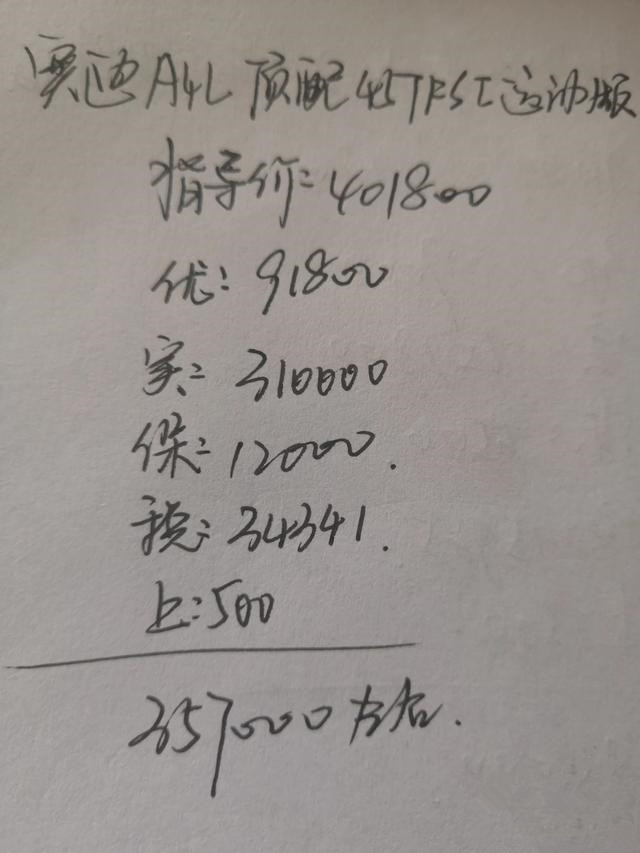 奥迪A4L 顶配45TFSI运动版
指导价:401800
优:91800
实:310000
保:12000.
税:34341.
上:500
357000左右.